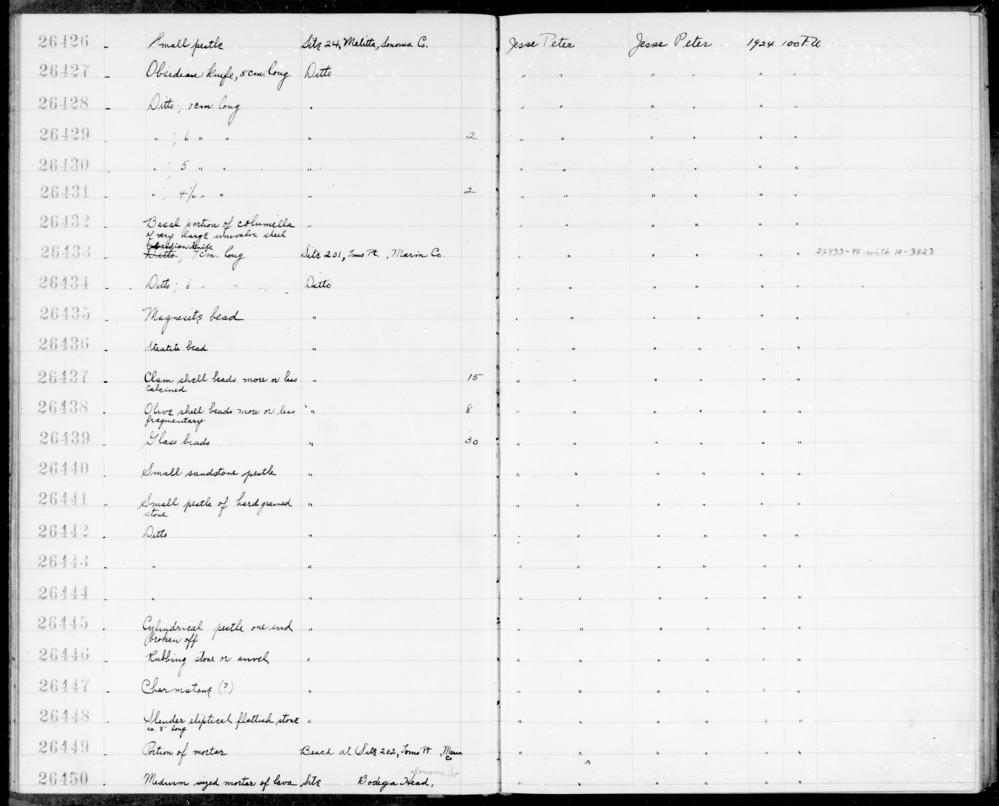 26426 - Small pestle Site 24, Melitta, Sonoma Co. Jesse Peter Jesse Peter 1924 100 F.U
26427 - Obsidian knife, 8 cm. long Ditto " " " " " "
26428 - Ditto; 7 cm. long " " " " " " "
26429 - " ; 6 " " " 2 " " " " " "
26430 - " ; 5 " " " " " " " " "
26431 - " ; 4½ " " " 2 " " " " " "
26432 - Basal portion of columella " " " " " " "
of very large univalve shell
Obsidian knife
26433 - Ditto; 7 cm. long Site 201, Toms Pt., Marin Co. " " " " " " 26433-48 with 12-3823
26434 - Ditto; 6 " " Ditto " " " " " "
26435 - Magnesite bead " " " " " " "
26436 - Steatite bead " " " " " " "
26437 - Clam shell beads more or less " 15 " " " " " "
calcined
26438 - Olive shell beads more or less " 8 " " " " " "
fragmentary
26439 - Glass beads " 30 " " " " " "
26440 - Small sandstone pestle " " " " " " "
26441 - Small pestle of hard grained " " " " " " "
stone
26442 - Ditto " " " " " " "
26443 - " " " " " " " "
26444 - " " " " " " " "
26445 - Cylindrical pestle one end " " " " " " "
broken off
26446 - Rubbing stone or anvil " " " " " " "
26447 - Charmstone (?) " " " " " " "
26448 - Slender eliptical flattish stone " " " " " " "
ca. 8" long
26449 - Portion of mortar Beach at Site 202, Toms Pt., Marin " " " " " "
Co
Sonoma Co
26450 - Medium sized mortar of lava Site Bodega Head, " " " " " "